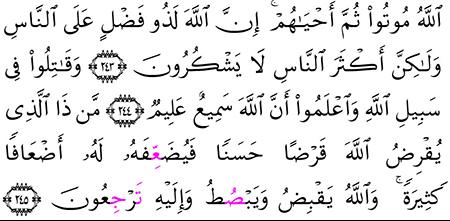 ٱللَّهُ مُوتُوا۟ ثُمَّ أَحْيَـٰهُمْ ۚ إِنَّ ٱللَّهَ لَذُو فَضْلٍ عَلَى ٱلنَّاسِ
وَلَـٰكِنَّ أَكْثَرَ ٱلنَّاسِ لَا يَشْكُرُونَ ٢٤٣ وَقَـٰتِلُوا۟ فِى
سَبِيلِ ٱللَّهِ وَٱعْلَمُوٓا۟ أَنَّ ٱللَّهَ سَمِيعٌ عَلِيمٌ ٢٤٤ مَّن ذَا ٱلَّذِى
يُقْرِضُ ٱللَّهَ قَرْضًا حَسَنًا فَيُضَعِّفَهُۥ لَهُۥٓ أَضْعَافًا
كَثِيرَةً ۚ وَٱللَّهُ يَقْبِضُ وَيَبْصُطُ وَإِلَيْهِ تَرْجِعُونَ ٢٤٥